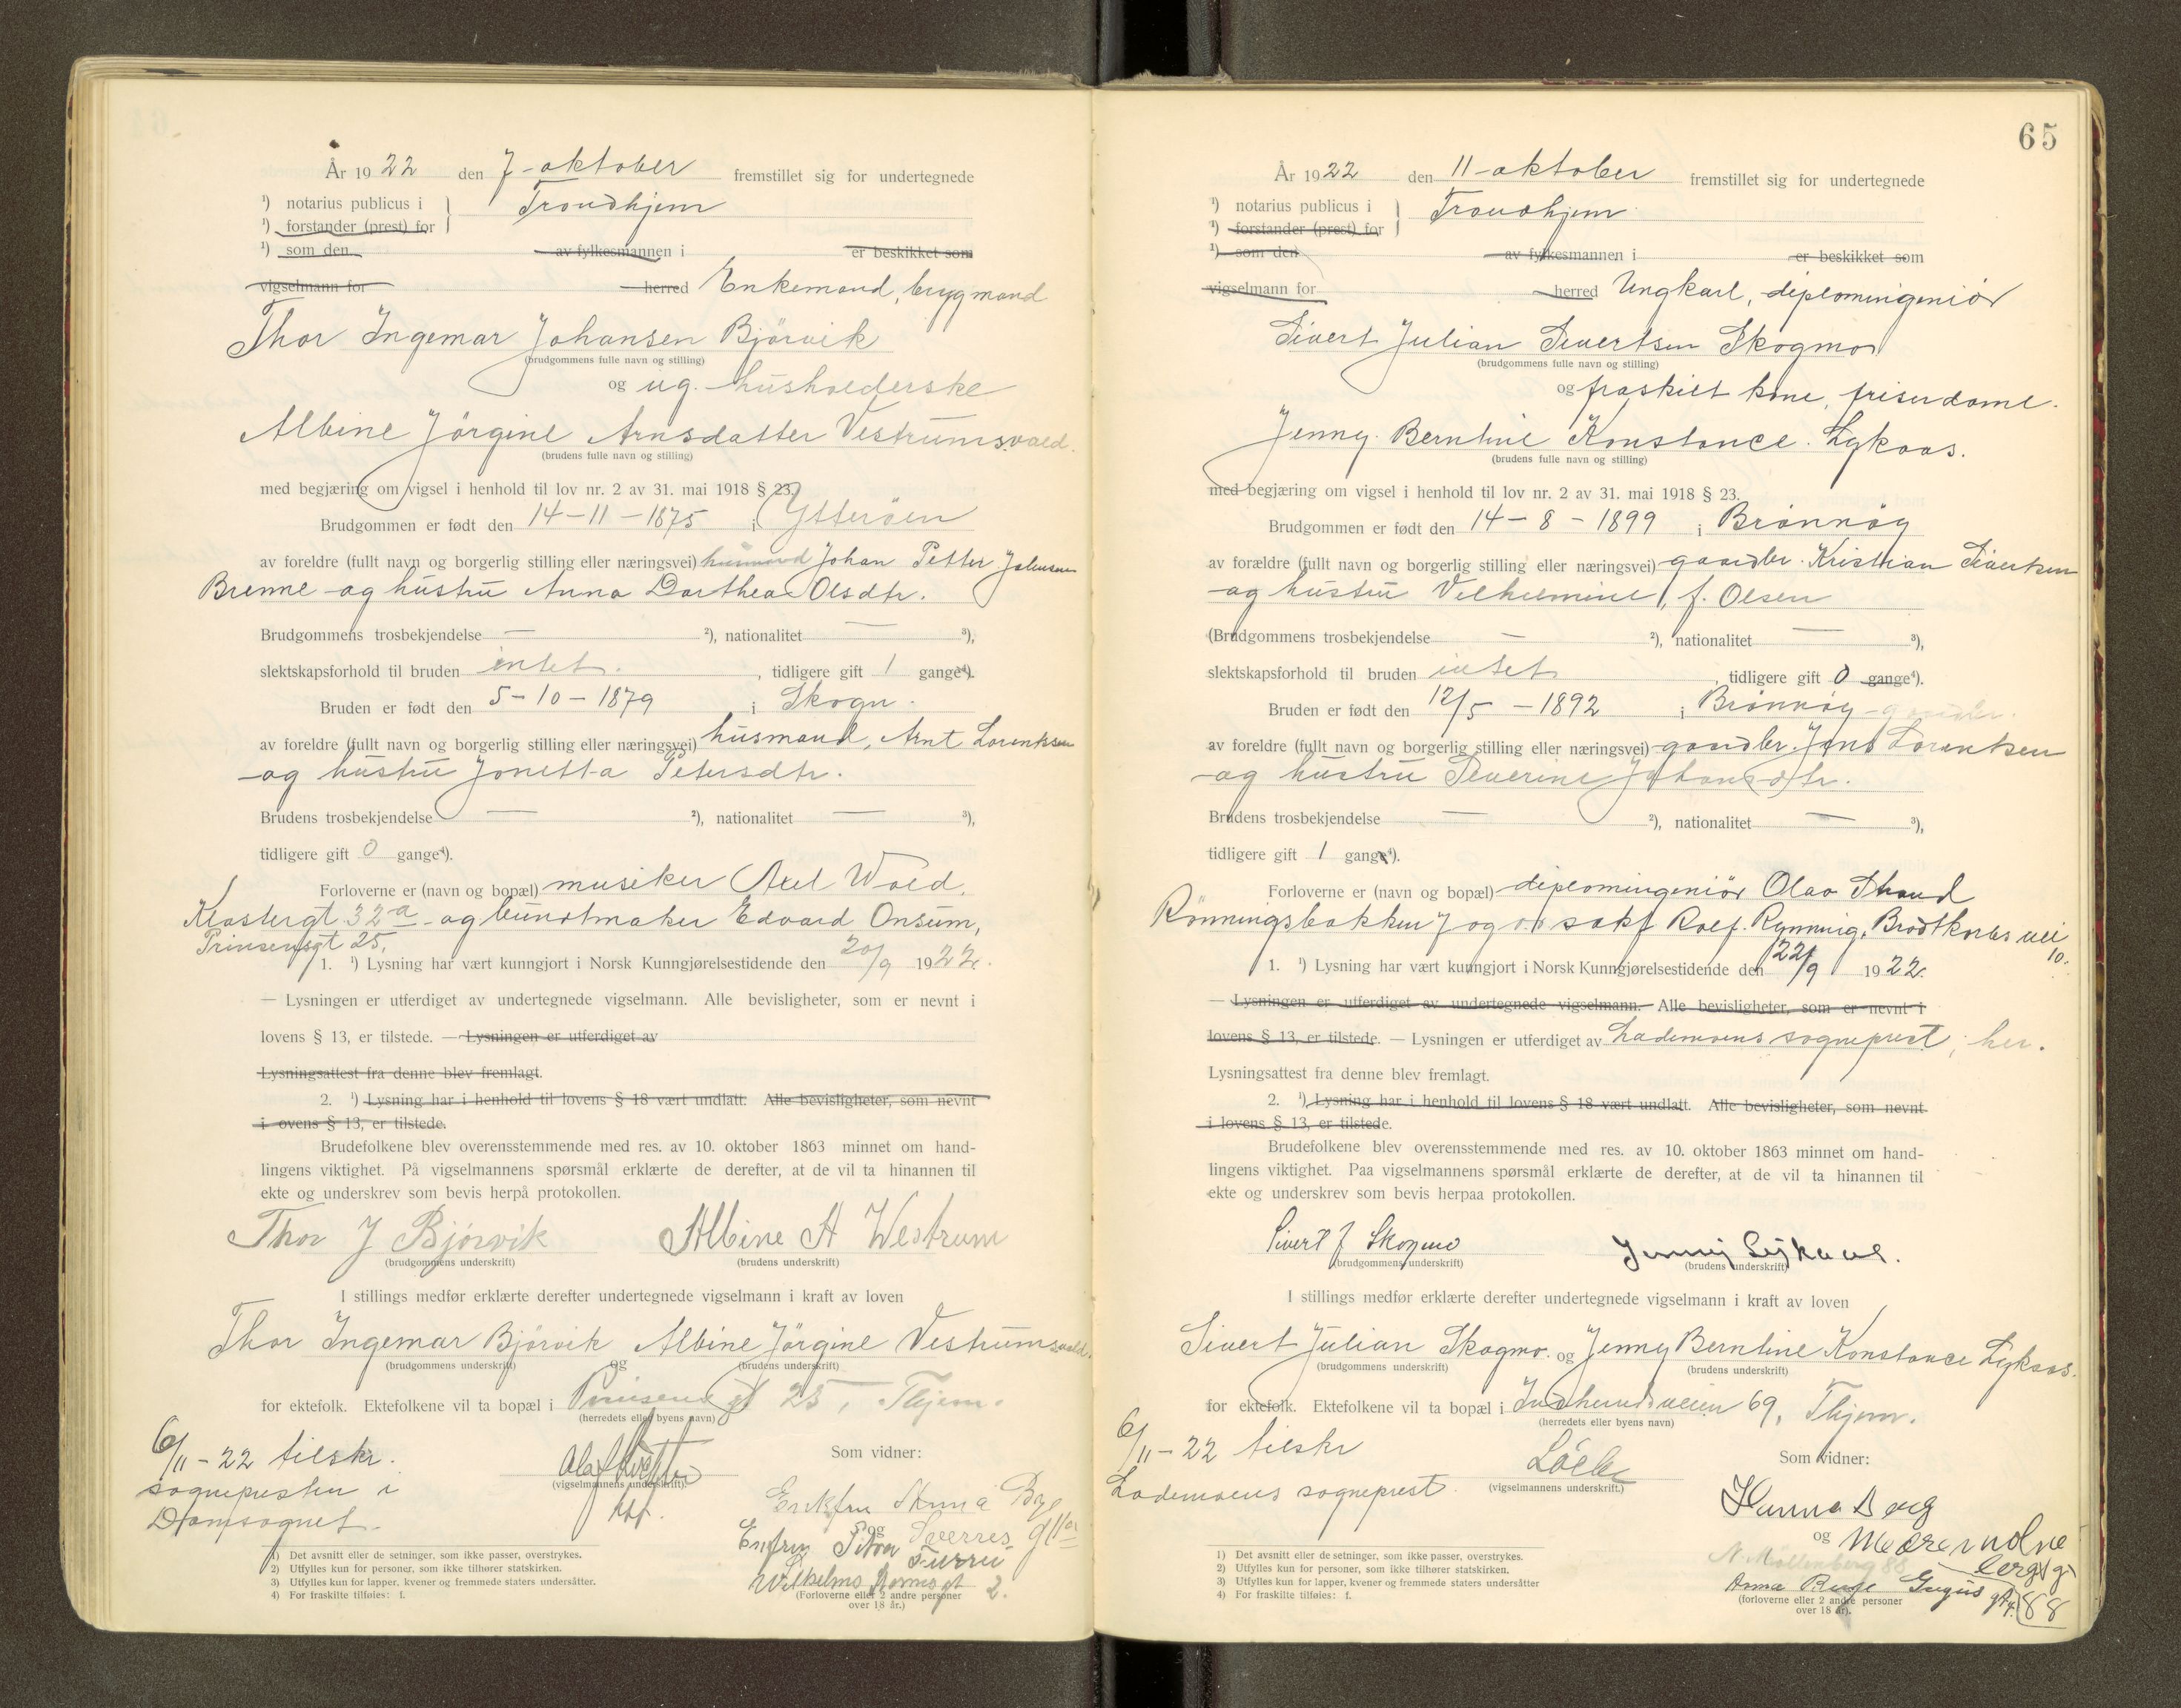 År 1922 den 7-oktober fremstillet sig for undertegnede
¹) notarius publicus i } Trondhjem
¹) forstander (prest) for
¹) som den av fylkesmannen i er beskikket som
vigselmann for herred Enkemand, brygmand
Thor Ingemar Johansen Bjørvik
(brudgommens fulle navn og stilling)
og ug. husholderske
Albine Jørgine Arnsdatter Vestrumsvald.
(brudens fulle navn og stilling)
med begjæring om vigsel i henhold til lov nr. 2 av 31. mai 1918 § 23.
Brudgommen er født den 14-11-1875 i Ytterøen
av foreldre (fullt navn og borgerlig stilling eller næringsvei) husmand Johan Petter Johnsen
Brenne og hustru Anna Dorthea Olsdtr.
Brudgommens trosbekjendelse — ²), nationalitet — ³),
slektskapsforhold til bruden intet. , tidligere gift 1 gange⁴).
Bruden er født den 5-10-1879 i Skogn.
av foreldre (fullt navn og borgerlig stilling eller næringsvei) husmand, Arnt Lorentsen
og hustru Jonetta Petersdtr.
Brudens trosbekjendelse — ²), nationalitet — ³),
tidligere gift 0 gange⁴).
Forloverne er (navn og bopæl) musiker Axel Wold,
Klostergt 32a og buntmaker Edvard Onsum,
Prinsensgt 25.
1. ¹) Lysning har vært kunngjort i Norsk Kunngjørelsestidende den 20/9 1922.
— Lysningen er utferdiget av undertegnede vigselmann. Alle bevisligheter, som er nevnt i
lovens § 13, er tilstede. — Lysningen er utferdiget av
Lysningsattest fra denne blev fremlagt.
2. ¹) Lysning har i henhold til lovens § 18 vært undlatt. Alle bevisligheter, som nevnt
i ovens § 13, er tilstede.
Brudefolkene blev overensstemmende med res. av 10. oktober 1863 minnet om hand-
lingens viktighet. På vigselmannens spørsmål erklærte de derefter, at de vil ta hinannen til
ekte og underskrev som bevis herpå protokollen.
Thor J Bjørvik Albine A Westrum
(brudgommens underskrift) (brudens underskrift)
I stillings medfør erklærte derefter undertegnede vigselmann i kraft av loven
Thor Ingemar Bjørvik Albine Jørgine Vestrumsvald.
(brudgommens underskrift) og (brudens underskrift)
for ektefolk. Ektefolkene vil ta bopæl i Prinsens gt 25, Thjem.
(herredets eller byens navn)
6/11-22 tilskr. Som vidner:
sognepresten i (vigselmannens underskrift).
Domsognet.
Enkefru Anna Bye
og
Enkefru Sverres gt 11a
Wilhelms 2.
(Forloverne eller 2 andre personer
over 18 år.)
1) Det avsnitt eller de setninger, som ikke passer, overstrykes.
2) Utfylles kun for personer, som ikke tilhører statskirken.
3) Utfylles kun for lapper, kvener og fremmede staters undersåtter.
4) For fraskilte tilføies: f.
65
År 1922 den 11-oktober fremstillet sig for undertegnede
¹) notarius publicus i } Trondhjem
¹) forstander (prest) for
¹) som den av fylkesmannen i er beskikket som
vigselmann for herred Ungkarl, diplomingeniør
Sivert Julian Sivertsen Skogmo
(brudgommens fulle navn og stilling)
og fraskilt kone, friserdame.
Jenny Berntine Konstance Lykaas.
(brudens fulle navn og stilling)
med begjæring om vigsel i henhold til lov nr. 2 av 31. mai 1918 § 23.
Brudgommen er født den 14-8-1899 i Brønnøy
av forældre (fullt navn og borgerlig stilling eller næringsvei) gaardbr. Kristian Sivertsen
og hustru Vilhelmine, f. Olsen
(Brudgommens trosbekjendelse — ²), nationalitet — ³),
slektskapsforhold til bruden intet , tidligere gift 0 gange⁴).
Bruden er født den 12/5-1892 i Brønnøy
av foreldre (fullt navn og borgerlig stilling eller næringsvei) gaardbr. Jens Lorentsen
og hustru Severine Johansdtr.
Brudens trosbekjendelse — ²), nationalitet — ³),
tidligere gift 1 gange⁴).
Forloverne er (navn og bopæl) diplomingeniør Olav Strand
Rønningsbakken 7 og o.r.sakf Rolf Rynning, Brodtkorbs vei
10.
1. ¹) Lysning har vært kunngjort i Norsk Kunngjørelsestidende den 22/9 1922.
— Lysningen er utferdiget av undertegnede vigselmann. Alle bevisligheter, som er nevnt i
lovens § 13, er tilstede. — Lysningen er utferdiget av Lademoens sogneprest, her.
Lysningsattest fra denne blev fremlagt.
2. ¹) Lysning har i henhold til lovens § 18 vært undlatt. Alle bevisligheter, som nevnt
i lovens § 13, er tilstede.
Brudefolkene blev overensstemmende med res. av 10. oktober 1863 minnet om hand-
lingens viktighet. Paa vigselmannens spørsmål erklærte de derefter, at de vil ta hinannen til
ekte og underskrev som bevis herpaa protokollen.
Sivert J Skogmo Jenny Lykaas.
(brudgommens underskrift) (brudens underskrift)
I stillings medfør erklærte derefter undertegnede vigselmann i kraft av loven
Sivert Julian Skogmo og Jenny Berntine Konstance Lykaas.
(brudgommens underskrift) (brudens underskrift)
for ektefolk. Ektefolkene vil ta bopæl i Indherredsveien 69, Thjem.
(herredets eller byens navn)
6/11-22 tilskr Som vidner:
Lademoens sogneprest. (vigselmannens underskrift.)
Hanna Berg
og
N. Møllenberg 88
Anna
88
(forloverne eller 2 andre personer
over 18 år).
1) Det avsnitt eller de setninger, som ikke passer, overstrykes.
2) Utfylles kun for personer, som ikke tilhører statskirken.
3) Utfylles kun for lapper, kvener og fremmede staters undersåtter
4) For fraskilte tilføies: f.